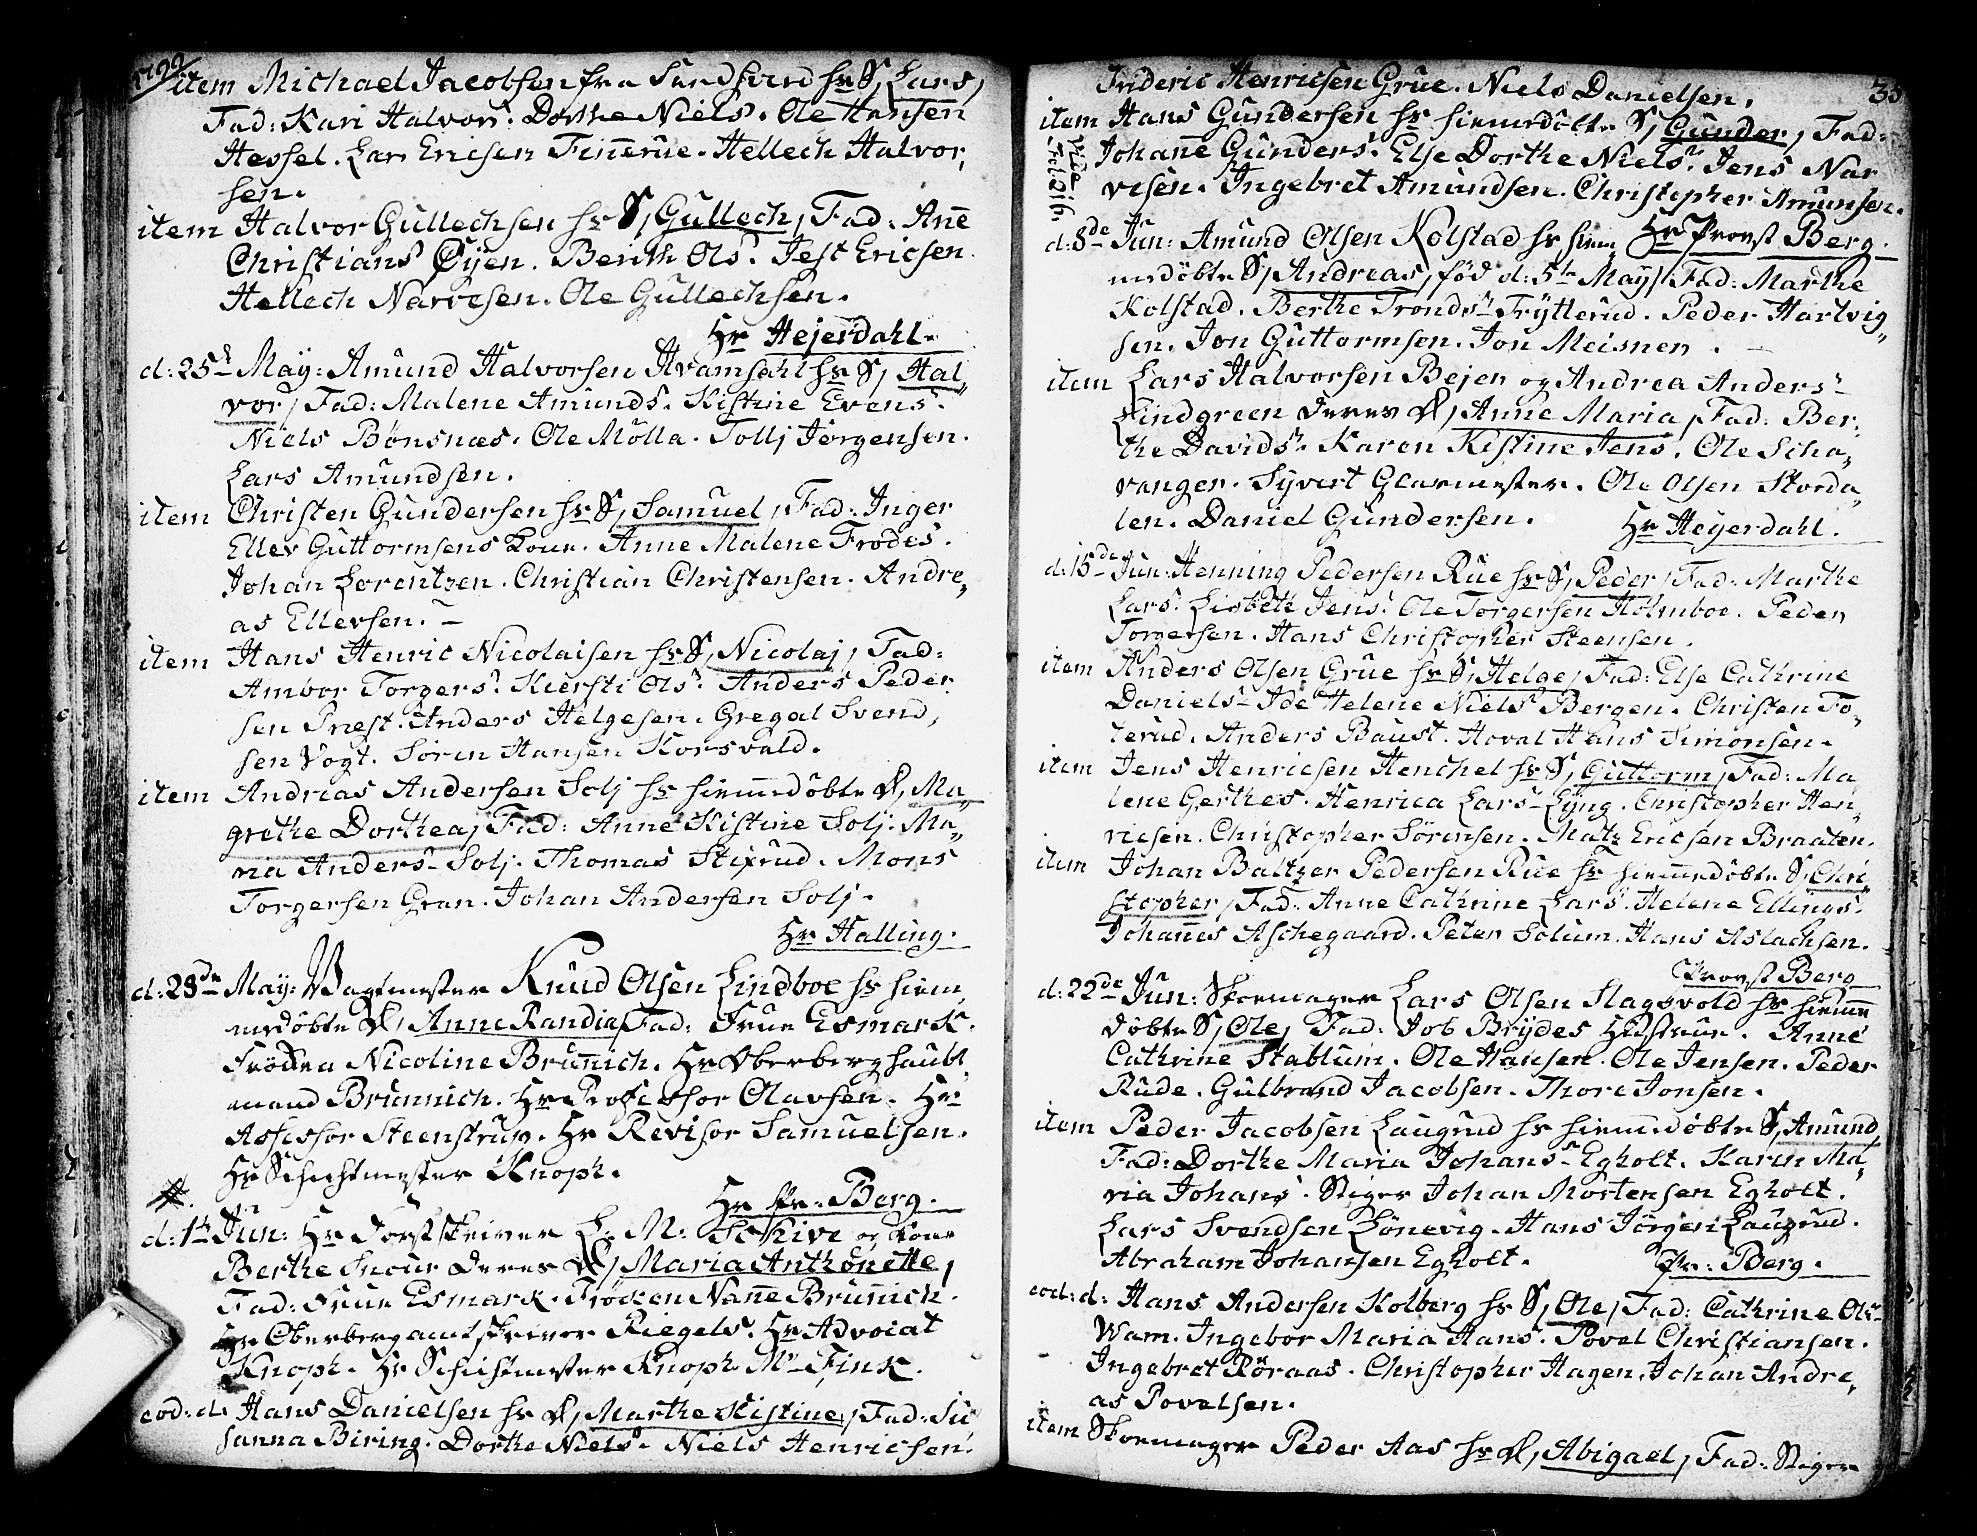 1799
item Michael Jacobsen fra Sundfiord hs S, Lars,
Fad: Kari Halvors. Dorthe Niels. Ole Hansen
Hessel. Lars Ericsen Tinnerue. Hellech Halvor,
sen.
item Halvor Gullechsen hs S, Gullech, Fad: Anne
Christians Øyen. Berith Ols. Jest Ericsen
Hellech Narvesen. Ole Gullechsen.
Hr Hejerdahl.
d: 25de May: Amund Halvorsen Hvamsahl hs S, Hal,,
vor, Fad: Malene Amunds. Kistine Evens.
Niels Bønsnæs. Ole Mølla. Tollj Jørgensen.
Lars Amundsen.
item Christen Gundersen hs S, Samuel, Fad: Inger
Ellev Guttormsens Kone. Anne Malene Frodes.
Johan Lorentzen. Christian Christensen. Andre,,
as Ellevsen. –
item Hans Henric Nicolaisen hs S, Nicolaj, Fad:
Ambor Torgers. Kiersti Ols. Anders Peder
sen Præst. Anders Helgesen. Gregal Svend,
sen Vogt. Søren Hansen Korsvold.
item Andreas Andersen Solj hs hiemmedøbte D, Ma,,
grethe Dorthea, Fad: Anne Kistine Solj. Ma,,
ria Anders Solj. Thomas Stixrud. Mons
Torgersen Gran. Johan Andersen Solj.
Hr Halling.
d: 28de May: Vagtmester Knud Olsen Lindboe hs hiem,
medøbte D, Anne Randia, Fad: Frue Esmark.
Frøken Nicoline Brünnich. Hr Oberberghaubt,
mand Brünnich. Hr Professor Olavsen. Hr
Assessor Steenstrup. Hr Revisor Samuelsen.
Hr Schichtmester Knoph.
Hr Pr: Berg.
d: 1te Jun: Hr Forstskriver L. M: Schive og Kone
Berthe deres D, Maria Anthonette,
Fad: Frue Esmark. Frøken Nanne Brünnich.
Hr Oberbergamtskriver Riegels. Hr Advocat
Knoph. Hr Schichtmester Knoph. Mr Fink.
eod: d: Hans Danielsen hs D, Marthe Kistine, Fad: Su
sanna Biring. Dorthe Niels. Niels Henricsen.
35
Frideric Henricsen Grue. Niels Danielsen.
item Hans Gundersen hs hiemedøbte S, Gunder, Fad:
Vide Fol 216.
Johanne Gunders. Else Dorthe Niels. Jens Nar
vesen. Ingebret Amundsen. Christopher Amunsen.
Hr Provst Berg.
d: 8de Jun: Amund Olsen Kolstad hs hiem,
medøbte S, Andreas, fød d: 5te May, Fad: Marthe
Kolstad. Berthe Tronds Frytterud. Peder Hartvig,,
sen. Jon Guttormsen. Jon Meisner.
item Lars Halvorsen Bejer og Andrea Anders
Lindgreen deres D, Anne Maria, Fad: Ber,
the Davids. Karen Kistine Jens. Ole Scha,
vanger. Syvert Glarmester. Ole Olsen Storda,
len. Daniel Gundersen.
Hr Heyerdahl.
d: 15de Jun: Henning Pedersen Rue hs S, Peder, Fad: Marthe
Lars. Lisbeth Jens. Ole Torgersen Holmboe. Peder
Torgersen. Hans Christopher Steensen.
item Anders Olsen Grue hs S, Helge, Fad: Else Cathrine
Daniels. Ide Helene Niels Bergen. Christen To,
terud. Anders Baust. Hoval Hans Simonsen.
item Jens Henricsen Henchel hs S, Guttorm, Fad: Ma,
lene Gerthes. Henrica Lars Lyng. Christopher Hen,
ricsen. Christopher Sørensen. Matz Ericsen Braaten.
item Johan Baltzer Pedersen Rue hs hiemmedøbte S, Chri
stopher, Fad: Anne Cathrine Lars. Helene Ellings.
Johannes Aschegaard. Peter Solum. Hans Aslachsen.
Provst Berg
d: 22de Jun: Skoemager Lars Olsen Flagsvold hs hiemme
døbte S, Ole, Fad: Job Brydes Hustrue. Anne
Cathrine Stablum. Ole Hansen. Ole Jensen. Peder
Rude. Gulbrand Jacobsen. Thore Jonsen.
item Peder Jacobsen Laugrud hs hiemmedøbte S, Amund,
Fad: Dorthe Maria Johans Egholt. Karen Ma,
ria Johans. Stiger Johan Mortensen Egholt.
Lars Svendsen Lønevig. Hans Jørgen Laugrud.
Abraham Johansen Egholt.
Pr: Berg.
eod: d: Hans Andersen Kolberg hs S, Ole, Fad: Cathrine Ols
Wam. Ingebor Maria Hans. Povel Christiansen.
Ingebret Røraas. Christopher Hagen. Johan Andre,,
as Povelsen.
item Skoemager Peder Aas hs D, Abigael, Fad: Stiger